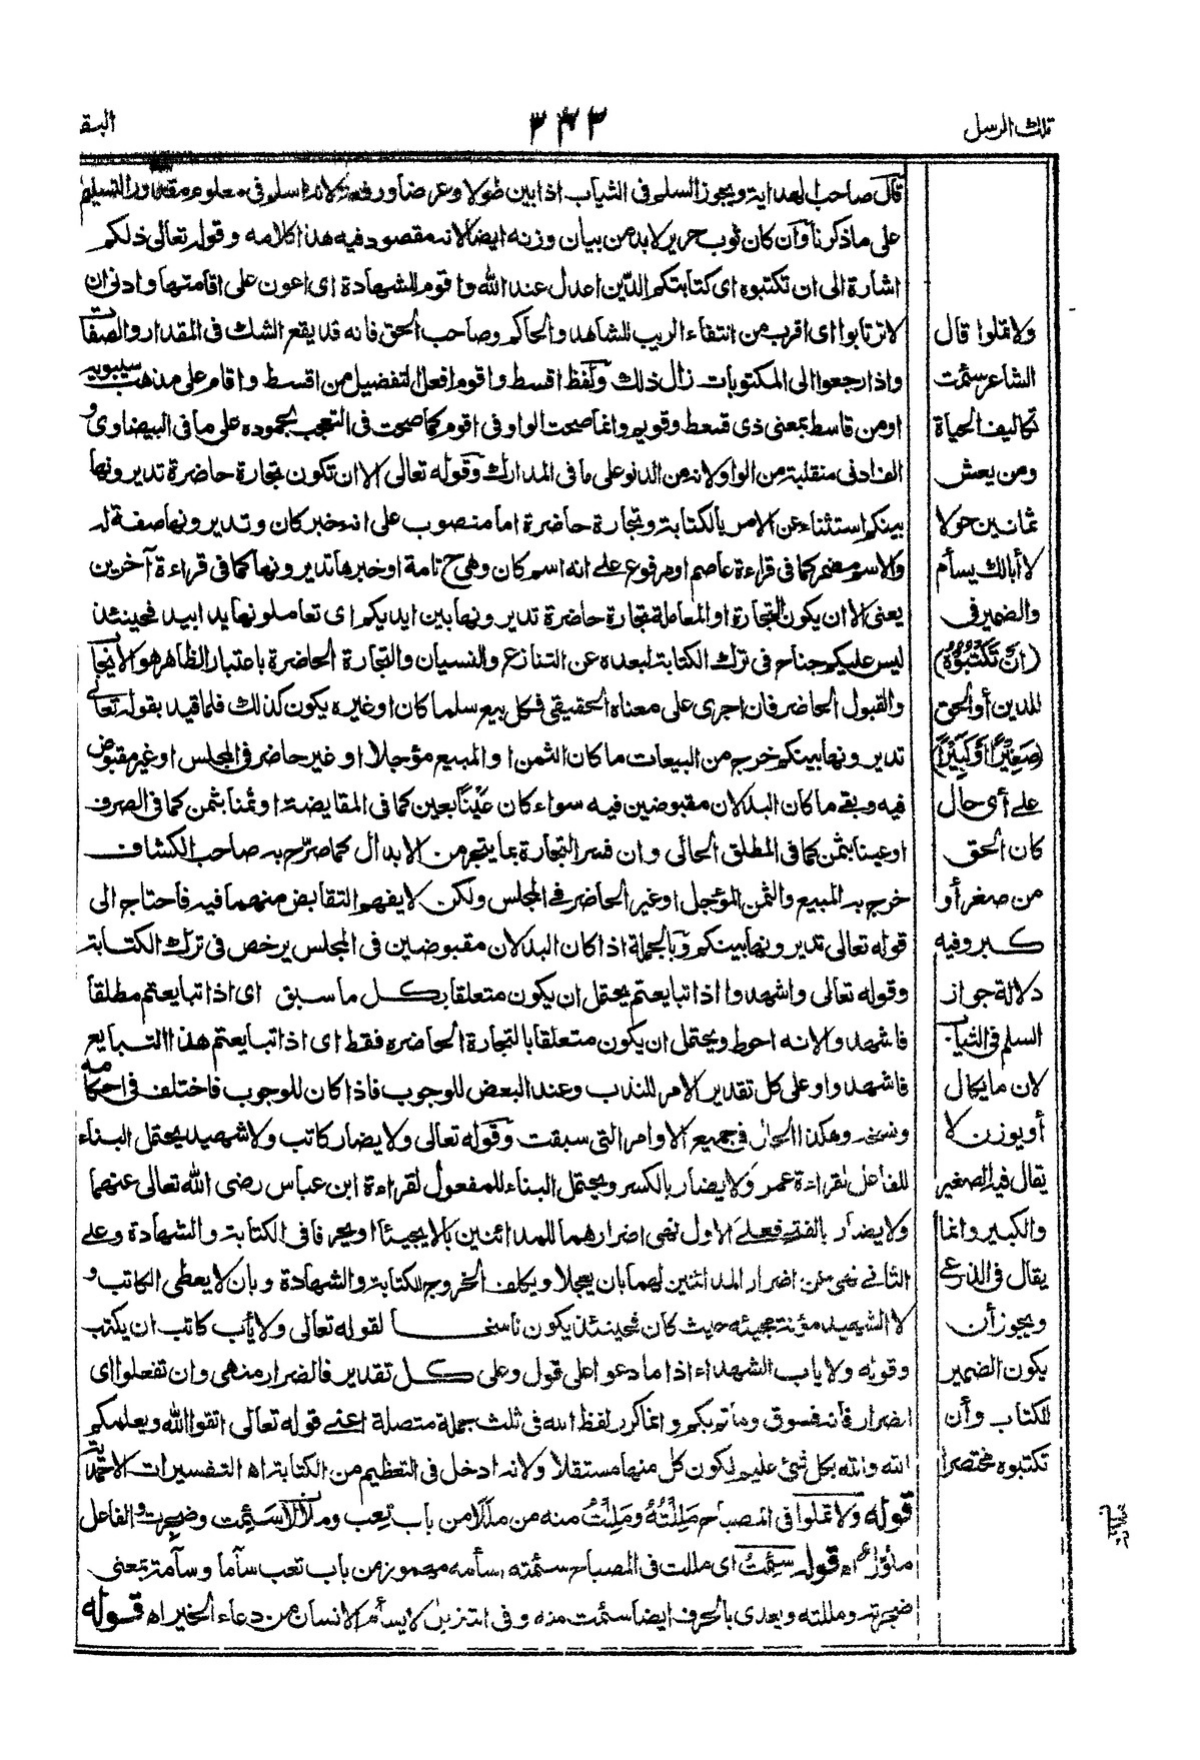 تلك الرسل
٣٣٢
البق
قال صاحب الهداية ويجوز السلم فى الثياب اذا بين طولا وعرضا ورقعة لانه اسلم فى معلوم مقدور التسليم
على ما ذكرنا وان كان ثوب حرير لابد من بيان وزنه ايضا لانه مقصود فيه هذا كلامه وقوله تعالى ذلكم
اشارة الى ان تكتبوه اى كتابتكم الدين اعدل عند الله واقوم للشهادة اى اعون على اقامتها وادنى ان
لا ترتابوا اى اقرب من انتفاء الريب للشاهد والحاكم وصاحب الحق فانه قد يقع الشك فى المقدار والصفات
واذا رجعوا الى المكتوبات زال ذلك ولفظ اقسط واقوم افعل التفضيل من اقسط واقام على مذهب سيبويه
او من قاسط بمعنى ذى قسط وقويم وانما صحت الواو فى اقوم كما صحت فى التعجب لجموده على ما فى البيضاوى و
الف ادنى منقلبة من الواو لانه من الدنو على ما فى المدارك وقوله تعالى الا ان تكون تجارة حاضرة تديرونها
بينكم استثناء عن الامر بالكتابة وتجارة حاضرة اما منصوب على انه خبر كان وتديرونها صفة له
والاسم مضمر كما فى قراءة عاصم او مرفوع على انه اسم كان وهى ح تامة او خبرها تديرونها كما فى قراءة آخرين
يعنى الا ان يكون التجارة او المعاملة تجارة حاضرة تديرونها بين ايديكم اى تعاملونها يدا بيد فحينئذ
ليس عليكم جناح فى ترك الكتابة لبعده عن التنازع والنسيان والتجارة الحاضرة باعتبار الظاهر هو الايجاب
والقبول الحاضر فان اجرى على معناه الحقيقى فكل بيع سلما كان او غيره يكون كذلك فلما قيد بقوله تعالى
تديرونها بينكم خرج من البيعات ما كان الثمن او المبيع مؤجلا او غير حاضر فى المجلس او غير مقبوض
فيه وبقى ما كان البدلان مقبوضين فيه سواء كان عينا بعين كما فى المقايضة او ثمنا بثمن كما فى الصرف
او عينا بثمن كما فى المطلق الحالى وان فسر التجارة بما يتجر من الابدال كما صرّح به صاحب الكشاف
خرج به المبيع والثمن المؤجل او غير الحاضر فى المجلس ولكن لا يفهم التقابض منهما فيه فاحتاج الى
قوله تعالى تديرونها بينكم وبالجملة اذا كان البدلان مقبوضين فى المجلس يرخص فى ترك الكتابة
وقوله تعالى واشهدوا اذا تبايعتم يحتمل ان يكون متعلقا بكل ما سبق اى اذا تبايعتم مطلقا
فاشهدوا لانه احوط ويحتمل ان يكون متعلقا بالتجارة الحاضرة فقط اى اذا تبايعتم هذا التبايع
فاشهدوا وعلى كل تقدير الامر للندب وعند البعض للوجوب فاذا كان للوجوب فاختلف فى احكامه
ونسخه وهكذا الحال فى جميع الاوامر التى سبقت وقوله تعالى ولا يضار كاتب ولا شهيد يحتمل البناء
للفاعل لقراءة عمر ولا يضار بالكسر ويحتمل البناء للمفعول لقراءة ابن عباس رضى الله تعالى عنهما
ولا يضار بالفتح فعلى الاول نهى اضرارهما للمدائنين بالا يجيئا او يحرفا فى الكتابة والشهادة وعلى
الثانى نهى عن اضرار المدائنين لهما بان يعجلا ويكلف الخروج للكتابة والشهادة وبان لا يعطى الكاتب و
لا الشهيد مؤنة مجيئه حيث كان فحينئذ يكون ناسخا لقوله تعالى ولا يأب كاتب ان يكتب
وقوله ولا ياب الشهداء اذا ما دعوا على قول وعلى كل تقدير فالضرار منهى وان تفعلوا اى
الضرار فانه فسوق ومأثم بكم وانما كرر لفظ الله فى ثلث جملة متصلة اعنى قوله تعالى اتقوا الله ويعلمكم
الله والله بكل شئ عليم لكون كل منها مستقلا ولانه ادخل فى التعظيم من الكتابة اه التفسيرات الاحمدية
قوله ولا تملوا فى المصباح مللته ومللت منه من مللا من باب تعب وملالا سئمت وضجرت والفاعل
ملول اه قوله سئمت اى مللت فى المصباح سئمته اسأمه مهموز من باب تعب سأما وسآمة بمعنى
ضجرته ومللته ويعدى بالحرف ايضا سئمت منه وفى التنزيل لا يسأم الانسان من دعاء الخير اه قوله
ولا تملوا قال
الشاعر سئمت
تكاليف الحياة
ومن يعش
ثمانين حولا
لا أبالك يسأم
والضمير فى
(ان تكتبوه)
للدين أو الحق
(صغيرا أو كبيرا)
على أى حال
كان الحق
من صغر أو
كبر وفيه
دلالة جواز
السلم فى الثياب
لان ما يكال
أو يوزن لا
يقال فيه الصغير
والكبير وانما
يقال فى الذرعى
ويجوز أن
يكون الضمير
للكتاب وأن
تكتبوه مختصرا